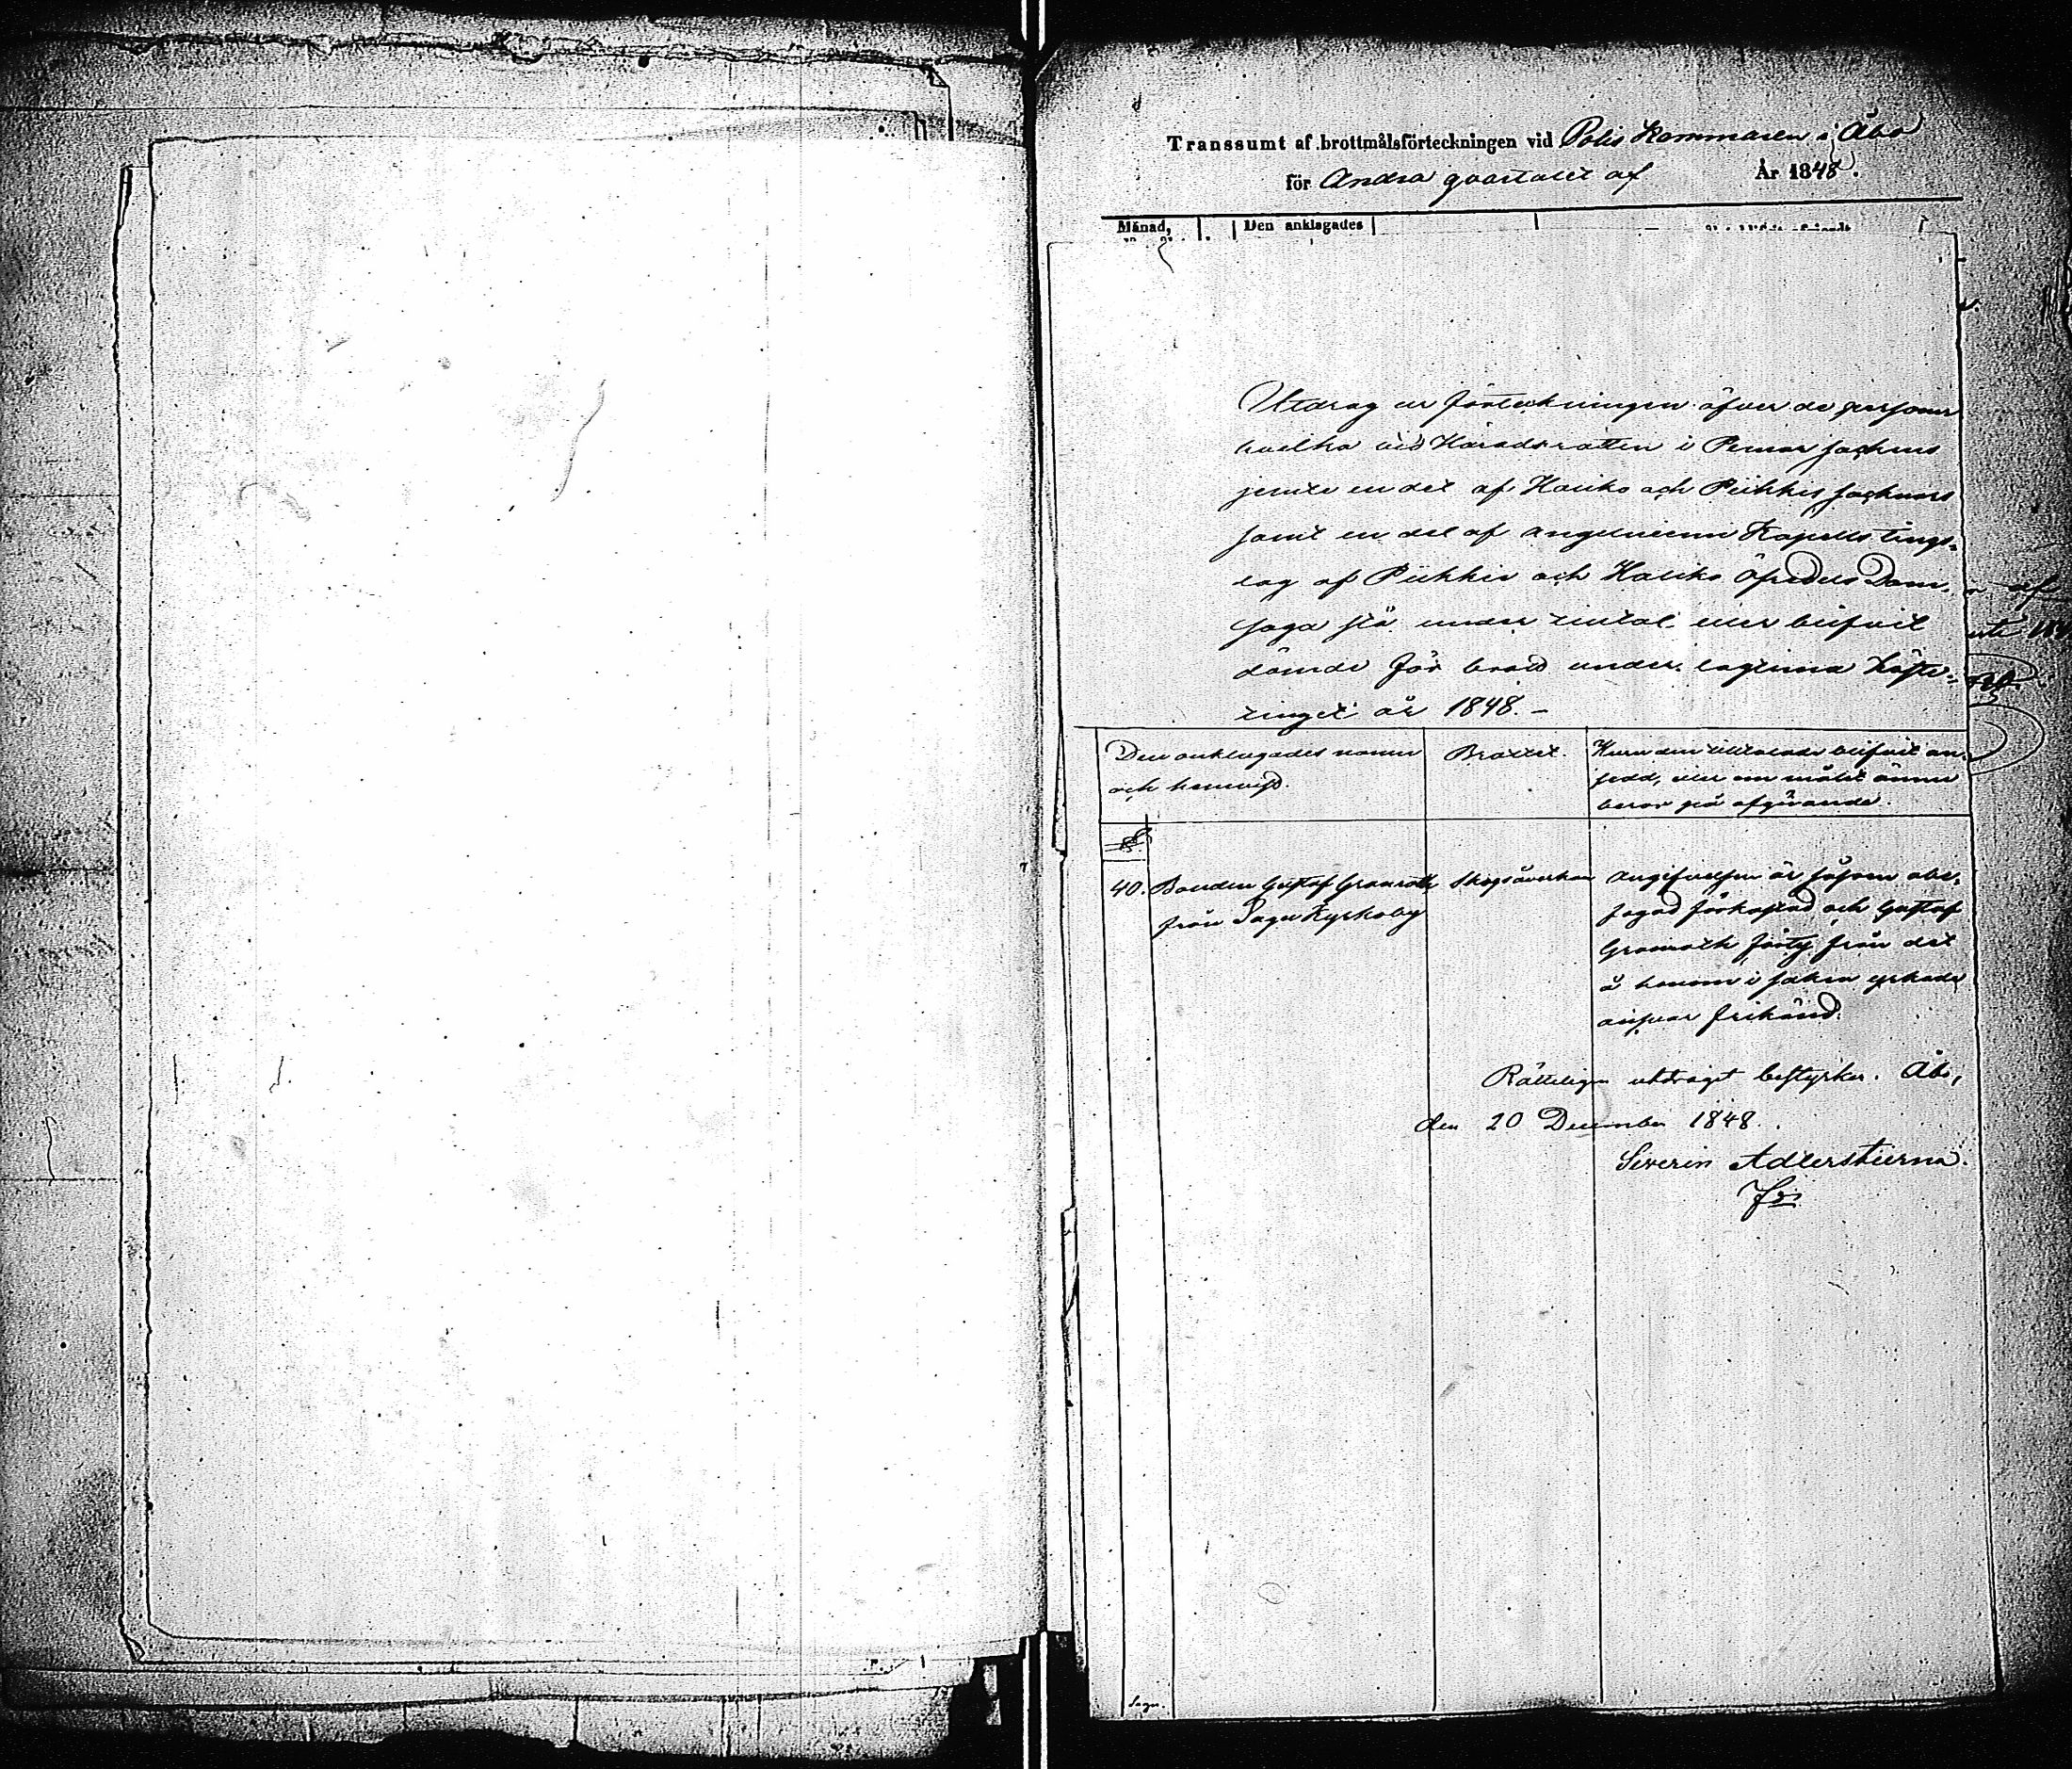 Transsumt af brottmålsförteckningen vid Polis Kammaren i Åbo
för Andra qvartalet af År 1848.
Månad, Den anklagades
Utdrag ur förteckningen öfver de personer
hvilka vid Häradsrätten i Pemar sochns
jemte en del af Haliko och Piikkis sochnars
samt en del af Angelniemi Kapells tings-
lag af Piikkis och Haliko Öfredels Dom-
saga stå under tiltal eller blifvit
dömde för brott under lagtima höste-
tinget år 1848. –
Den anklagades namn
och hemvist.
Brottet.
Huru den tilltalade blifvit an-
sedd, eller om målet ännu
beror på afgörande.
40. Bonden Gustaf Granroth
från Sagu Kyrkoby
Skogsåverkan
Angifvelsen är såsom obe-
fogad förkastad och Gustaf
Granroth förty från det
å honom i saken yrkade
ansvar frikänd.
Rätteligen utdraget bestyrker. Åbo,
den 20 December 1848.
Severin Adlerstierna.
Sagu.